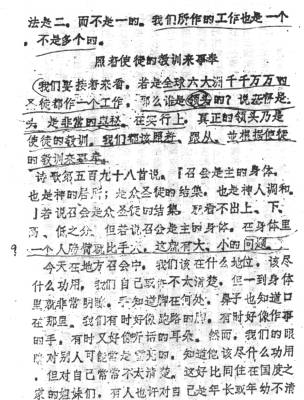 法是二。而不是一的。我们所作的工作也是一个
，不是多个的。
照着使徒的教训来事奉
我们要接着来看，若是全球六大洲千千万万的
圣徒都作一个工作，那么谁是领头的？说
头，是非常的，在实行上，真正的领头乃是
使徒的教训。我们都该照着、跟从、并根据使徒
的教训来事奉。
诗歌第五百九十八首说，『召会是主的身体，
也是神的居所；是众圣徒的结集，也是神人调和。
』若说召会是众圣徒的结集，看不出上、下、
高、低之分。但若说召会是主的身体，在身体里
一个人胳臂就比手大，这就有大、小的问题。
今天在地方召会中，我们该在什么地位，该尽
什么功用，我们自己不大清楚。但一到身体
里就非常明，知道脚在何处，鼻子也知道口
在那里。我们有时好像跑路的脚，有时好像作事
的手，有时又好像听话的耳朵。然而，我们的眼
对别人可能的，知道他该尽什么功用
，但对自己常常不大清楚。这好比同住在国度之
家的姐妹们，有人也许对自己是年长或年幼不清